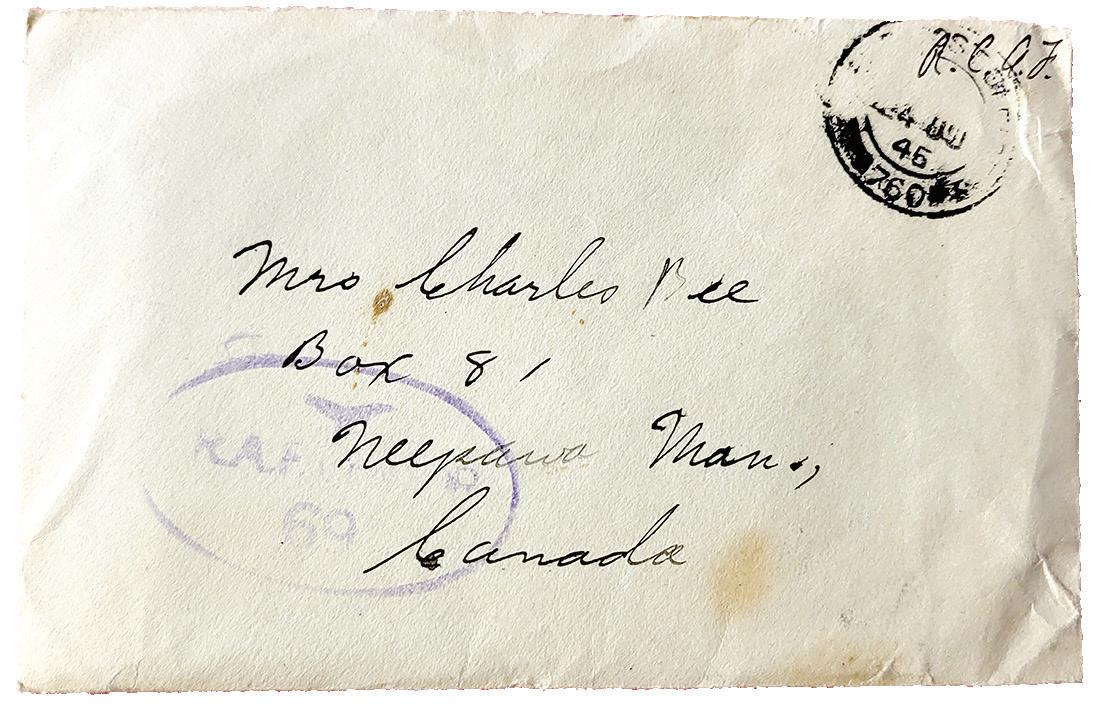 R.C.A.F.
4 JU
46
760
Mrs Charles Bee
Box 81
Neepawa Man.,
Canada
RAF
69